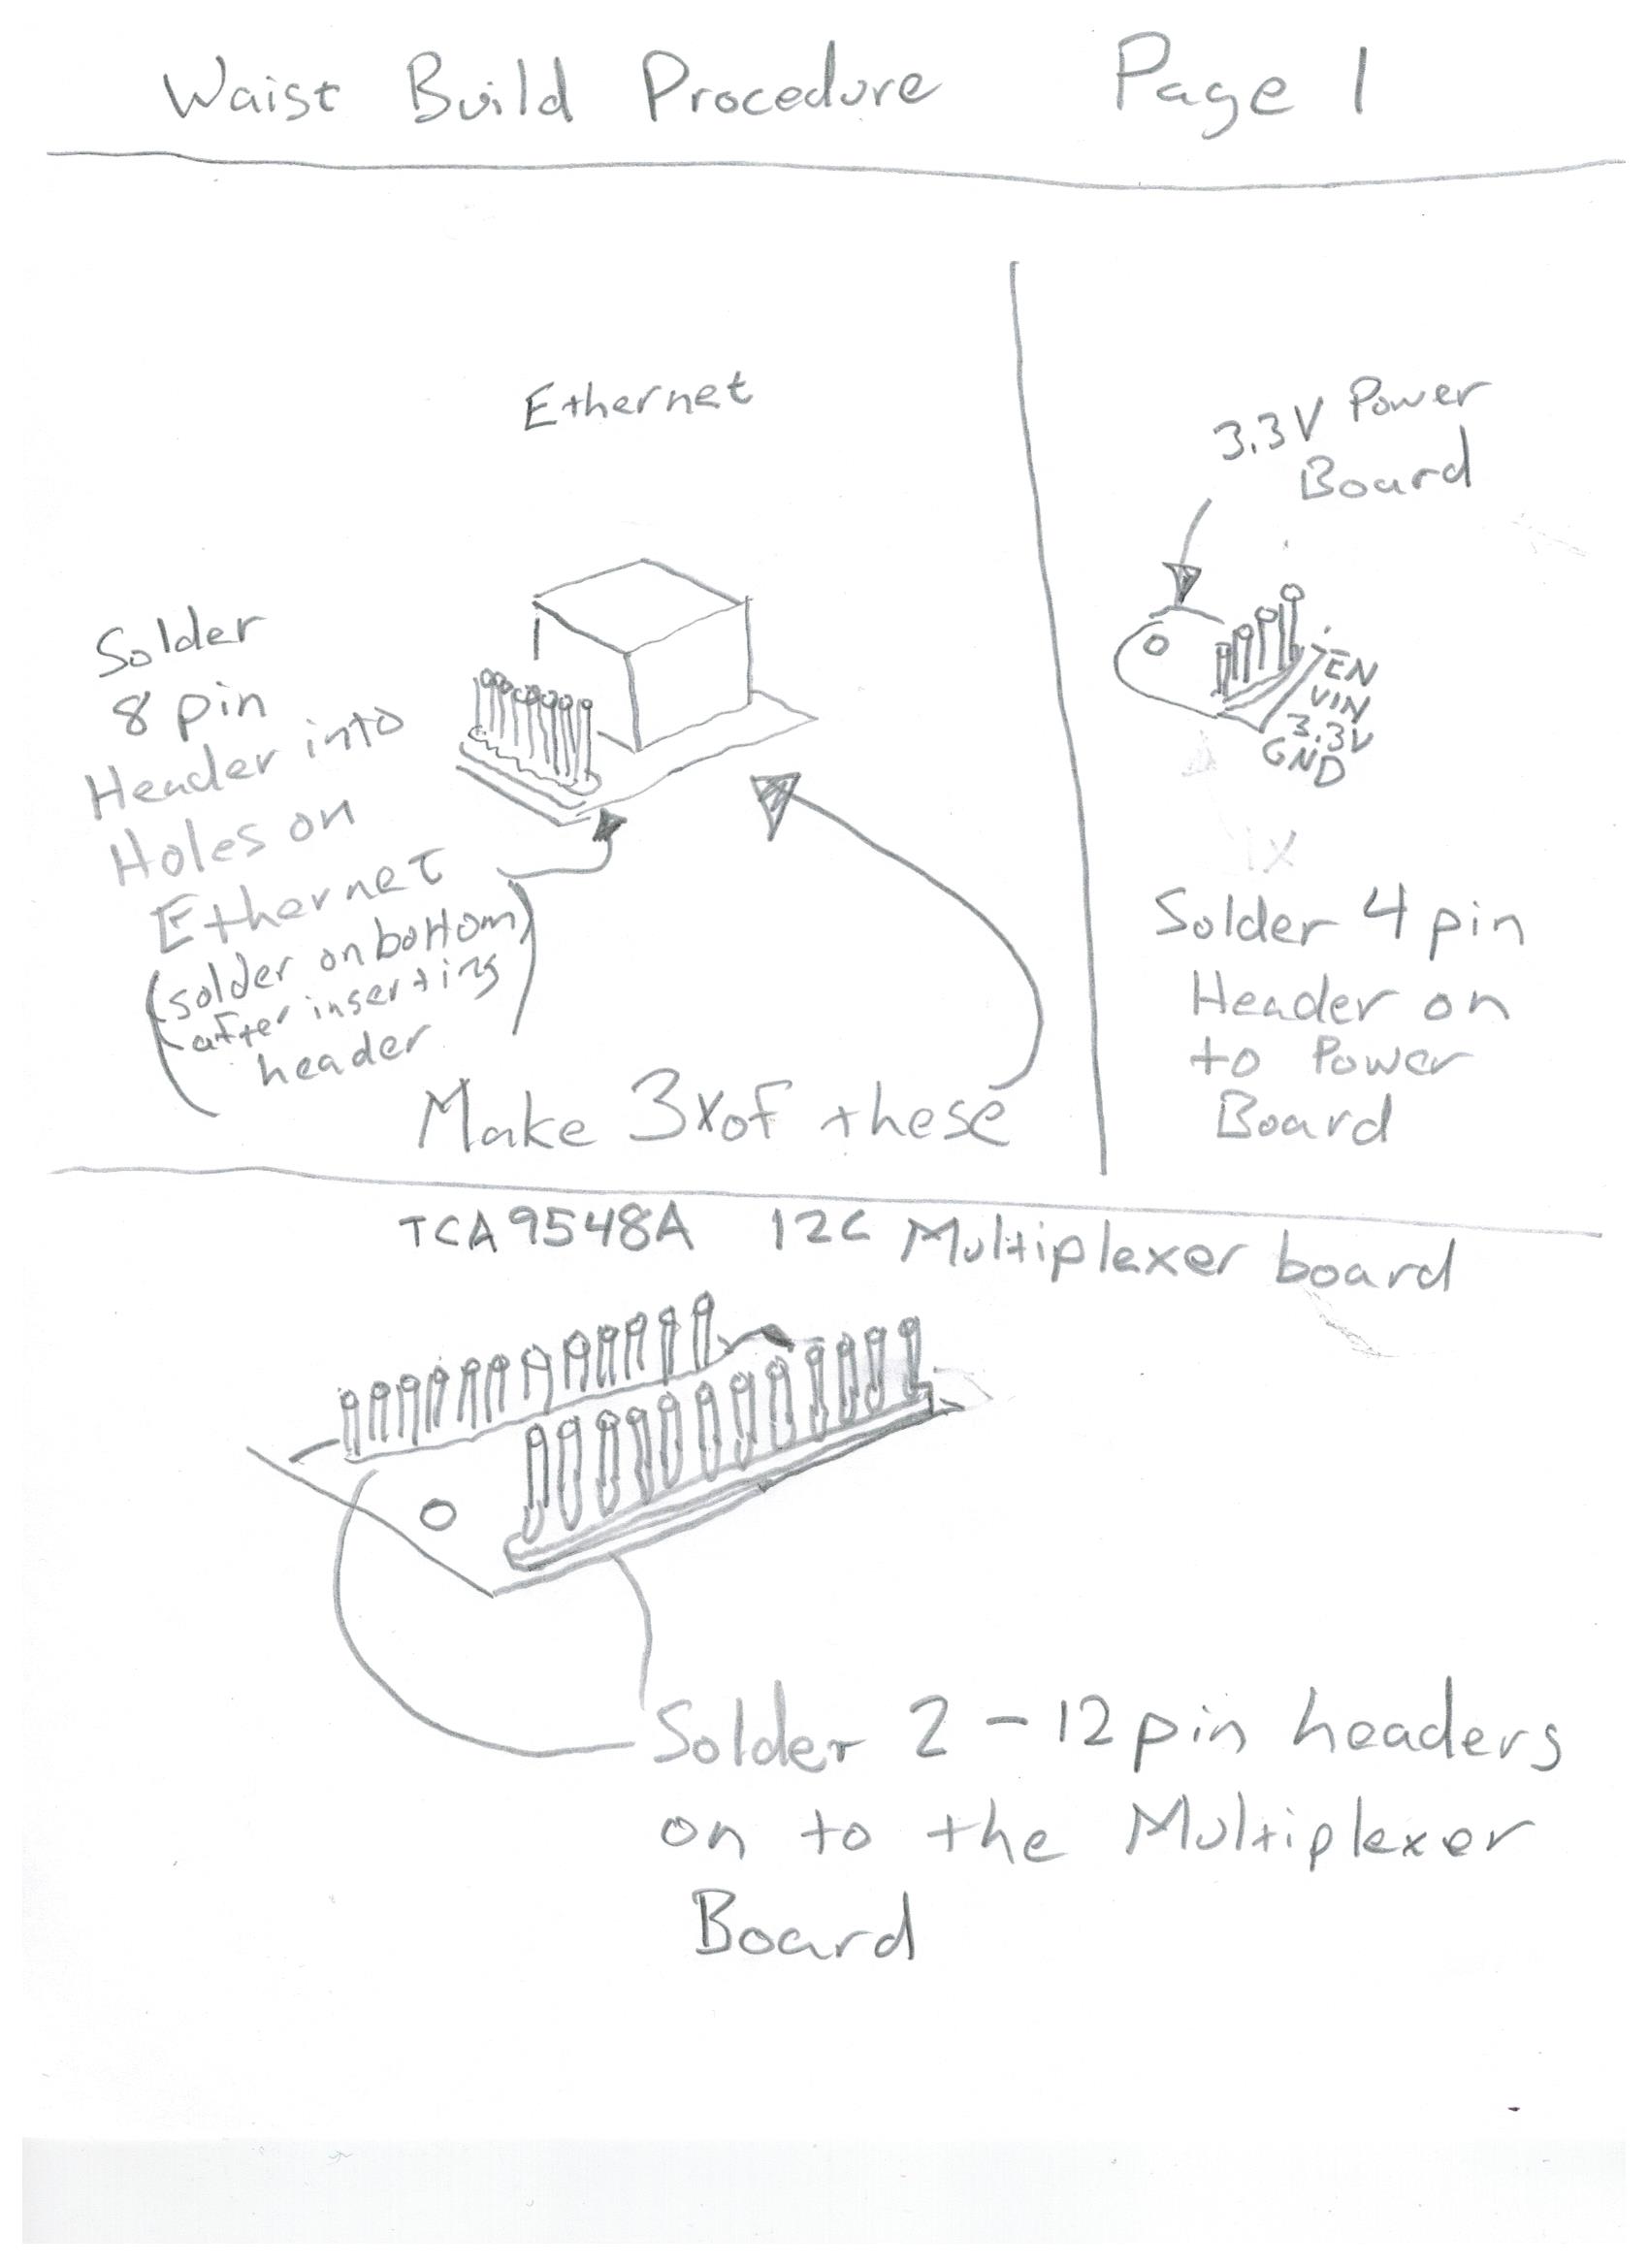 Waist Build Procedure Page 1
Ethernet
Solder
8 pin
Header into
Holes on
Ethernet
(solder on bottom)
after inserting
header
Make 3x of these
3.3V Power
Board
EN
VIN
3.3V
GND
1x
Solder 4 pin
Header on
to Power
Board
TCA9548A I2C Multiplexer board
Solder 2 - 12 pin headers
on to the Multiplexer
Board